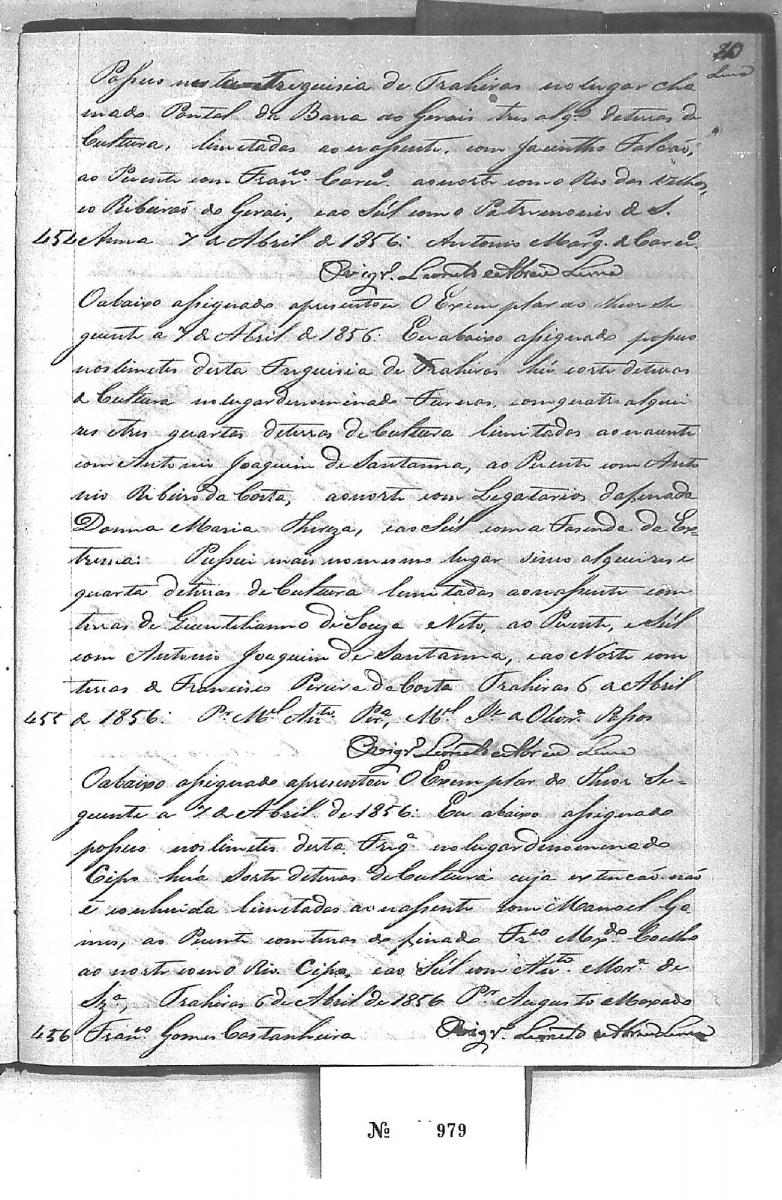 20
Lima
Possuo nesta Freguisia de Trahiras no lugar cha
mado Pontal da Barra do Gerais tres alqs. de terras de
Cultura, limitadas ao nassente, com Jacintho Falcão,
ao Puente com Franco. Caro. ao norte com o Rio das Velhas,
e o Ribeirão do Gerais, e ao Sul com o Patrimonio de S.
454 Anna 7 de Abril de 1856. Antonio Marq. de Caro.
O Vigro. Leonel de Abreu Lima
O abaixo assignado apresentou O Exemplar do theor Se
guinte a 7 de Abril de 1856. Eu abaixo assignado possuo
nos limites desta Freguisia de Trahiras huá sorte de terras
de Cultura no lugar denominado Furnas, com quatro alquei
res e tres quartas de terras de Cultura limitadas ao nacente
com Antonio Joaquim de Santanna, ao Puente com Anto
nio Ribeiro da Costa, ao norte com Legatarios da finada
Donna Maria Thereza, e ao Sul com a Fasenda da Ex-
trema. Possui mais no mesmo lugar sinco alqueires e
quarta de terras de Cultura limitadas ao nassente com
terras de Quintilianno de Souza Neto, ao Puente, e Sul
com Antonio Joaquim de Santanna, e ao Norte com
terras de Francisco Pereira da Costa Trahiras 6 de Abril
455 de 1856. Pr. Ml. Anto. Pra., Ml. Je. de Olivra. Passos
O Vigro. Leonel de Abreu Lima
O abaixo assignado apresentou O Exemplar do theor Se-
guinte a 7 de Abril de 1856. Eu abaixo assignado
possuo nos limites desta Frega. no lugar denominado
Cipo huá Sorte de terras de Cultura cuja extencão não
é conhecida limitadas ao nassente com Manoel Go
mes, ao Puente com terras do finado Fr.co Mxdo. Coelho
ao norte com o Rio Cipo, e ao Sul com Anto. Mora. de
Sza., Trahiras 6 de Abril de 1856 Pr. Augusto Maxado
456 Franco. Gomes Castanheira O Vigro. Leonel de Abreu Lima
No 979